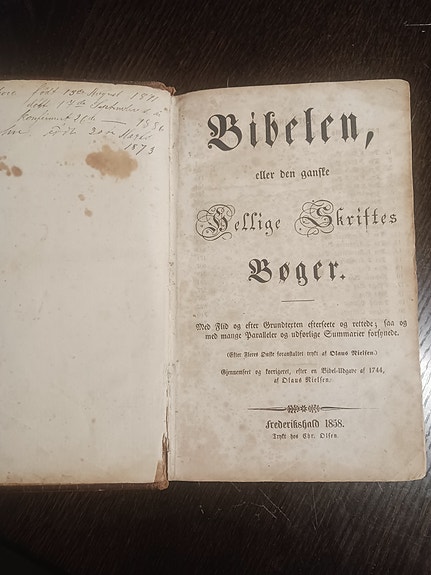 født 13de August 1871
døbt 17de September
Konfirmeret 26de — 1886
født 20de
1873
Bibelen,
eller den ganske
Hellige Skriftes
Bøger.
Med Flid og efter Grundtexten efterseete og rettede; saa og
med mange Paralleler og udførlige Summarier forsynede.
(Efter Fleres Ønske foranstaltet trykt af Olaus Nielsen.)
Gjennemseet og korrigeret, efter en Bibel-Udgave af 1744,
af Olaus Nielsen.
Frederikshald 1858.
Trykt hos Chr. Olsen.